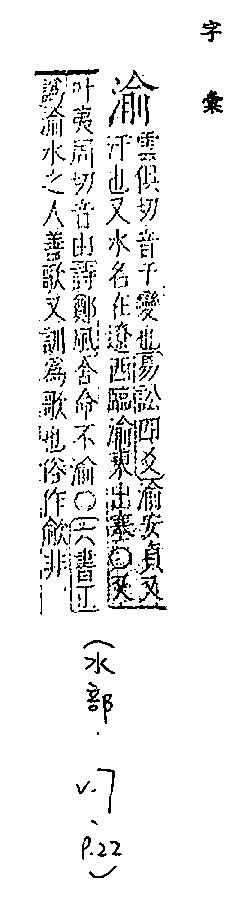 字彙
渝
雲俱切音于變也易訟四爻渝安貞又
汙也又水名在遼西臨渝東出塞〇又
叶夷周切音由詩鄭風舍命不渝〇六書正
譌渝水之人善歌又訓爲歌也俗作歈非
(水部.
V.7、
P.22)